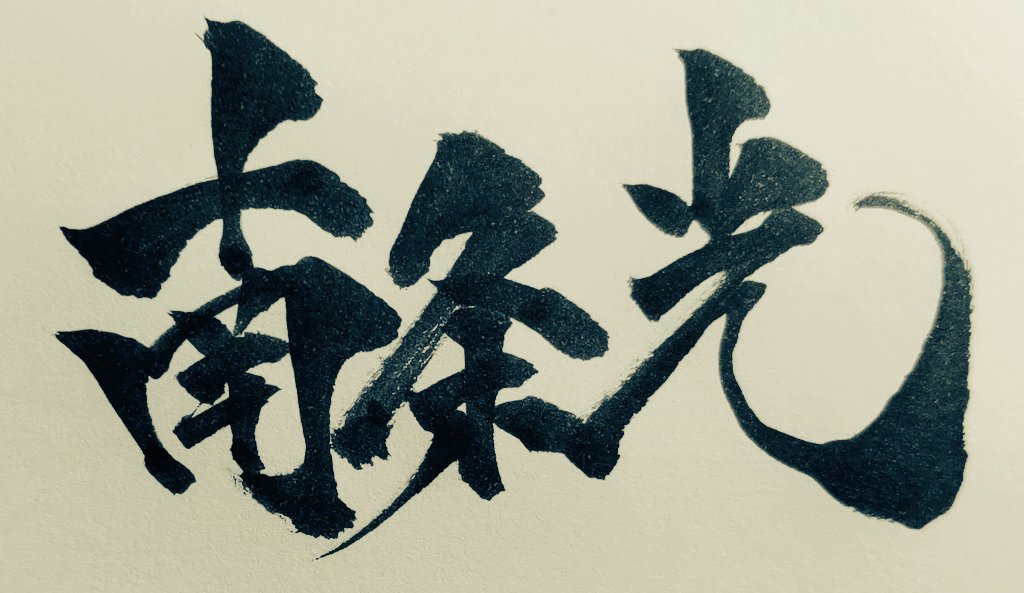 南条光